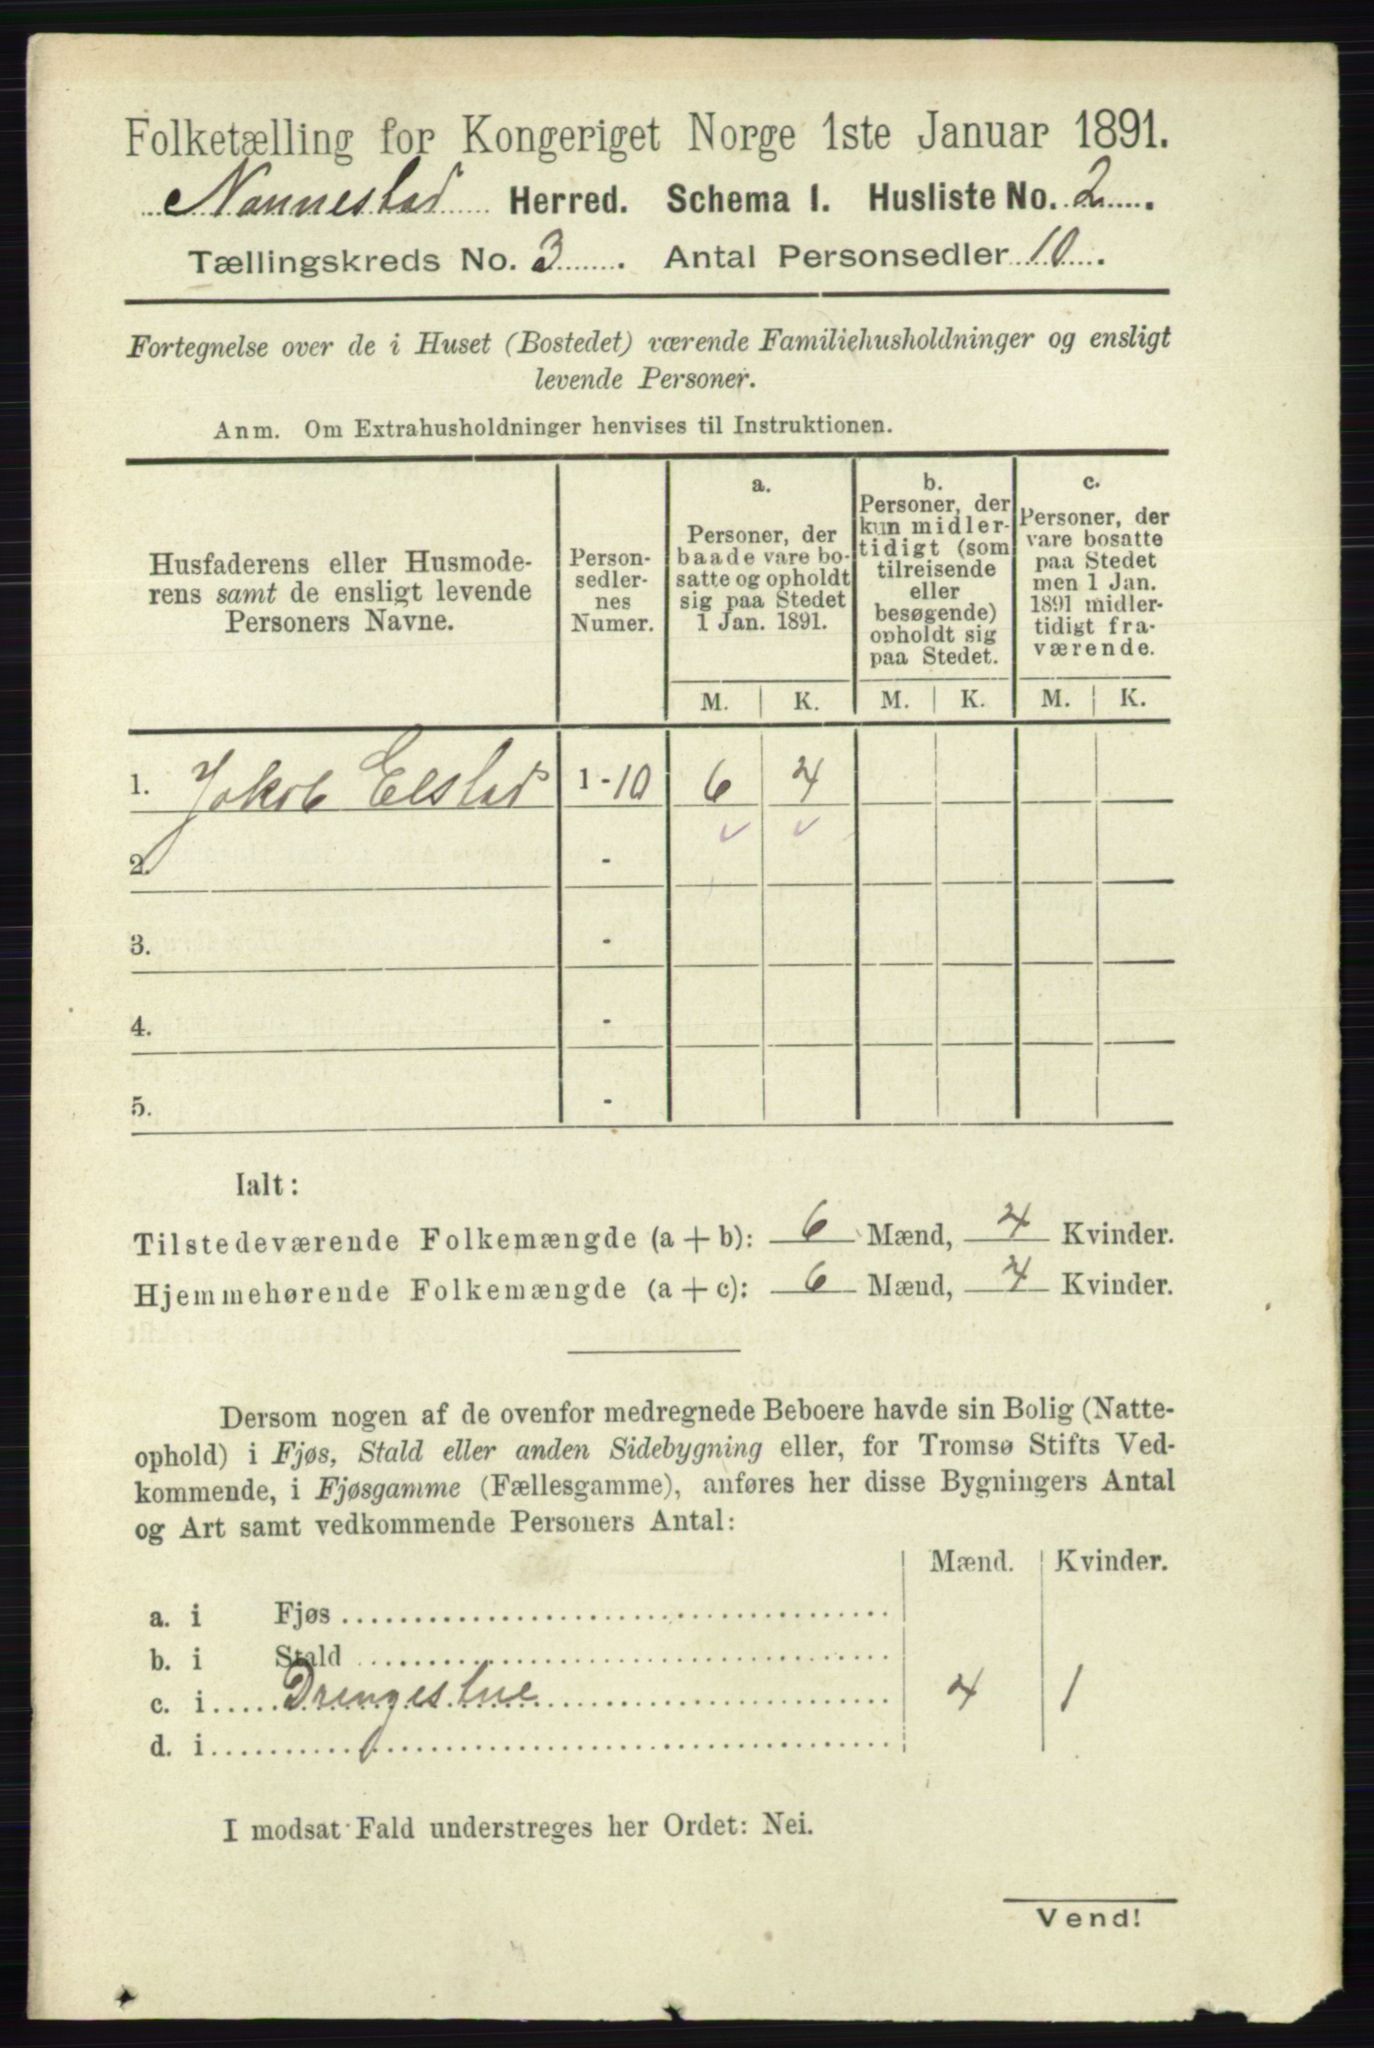 Folketælling for Kongeriget Norge 1ste Januar 1891.
Nannestad Herred. Schema 1. Husliste No. 2.
Tællingskreds No. 3. Antal Personsedler 10.
Fortegnelse over de i Huset (Bostedet) værende Familiehusholdninger og ensligt
levende Personer.
Anm. Om Extrahusholdninger henvises til Instruktionen.
Husfaderens eller Husmode-
rens samt de ensligt levende
Personers Navne.
Person-
sedler-
nes
Numer.
a.
Personer, der
baade vare bo-
satte og opholdt
sig paa Stedet
1 Jan. 1891.
b.
Personer, der
kun midler-
tidigt (som
tilreisende
eller
besøgende)
opholdt sig
paa Stedet.
c.
Personer, der
vare bosatte
paa Stedet
men 1 Jan.
1891 midler-
tidigt fra-
værende.
M. K. M. K. M. K.
1. Jakob Elstad 1-10 6 4
2. -
3. -
4. -
5. -
Ialt:
Tilstedeværende Folkemængde (a + b): 6 Mænd, 4 Kvinder.
Hjemmehørende Folkemængde (a + c): 6 Mænd, 4 Kvinder.
Dersom nogen af de ovenfor medregnede Beboere havde sin Bolig (Natte-
ophold) i Fjøs, Stald eller anden Sidebygning eller, for Tromsø Stifts Ved-
kommende, i Fjøsgamme (Fællesgamme), anføres her disse Bygningers Antal
og Art samt vedkommende Personers Antal:
Mænd. Kvinder.
a. i Fjøs
b. i Stald
c. i Drengestue 4 1
d. i
I modsat Fald understreges her Ordet: Nei.
Vend!